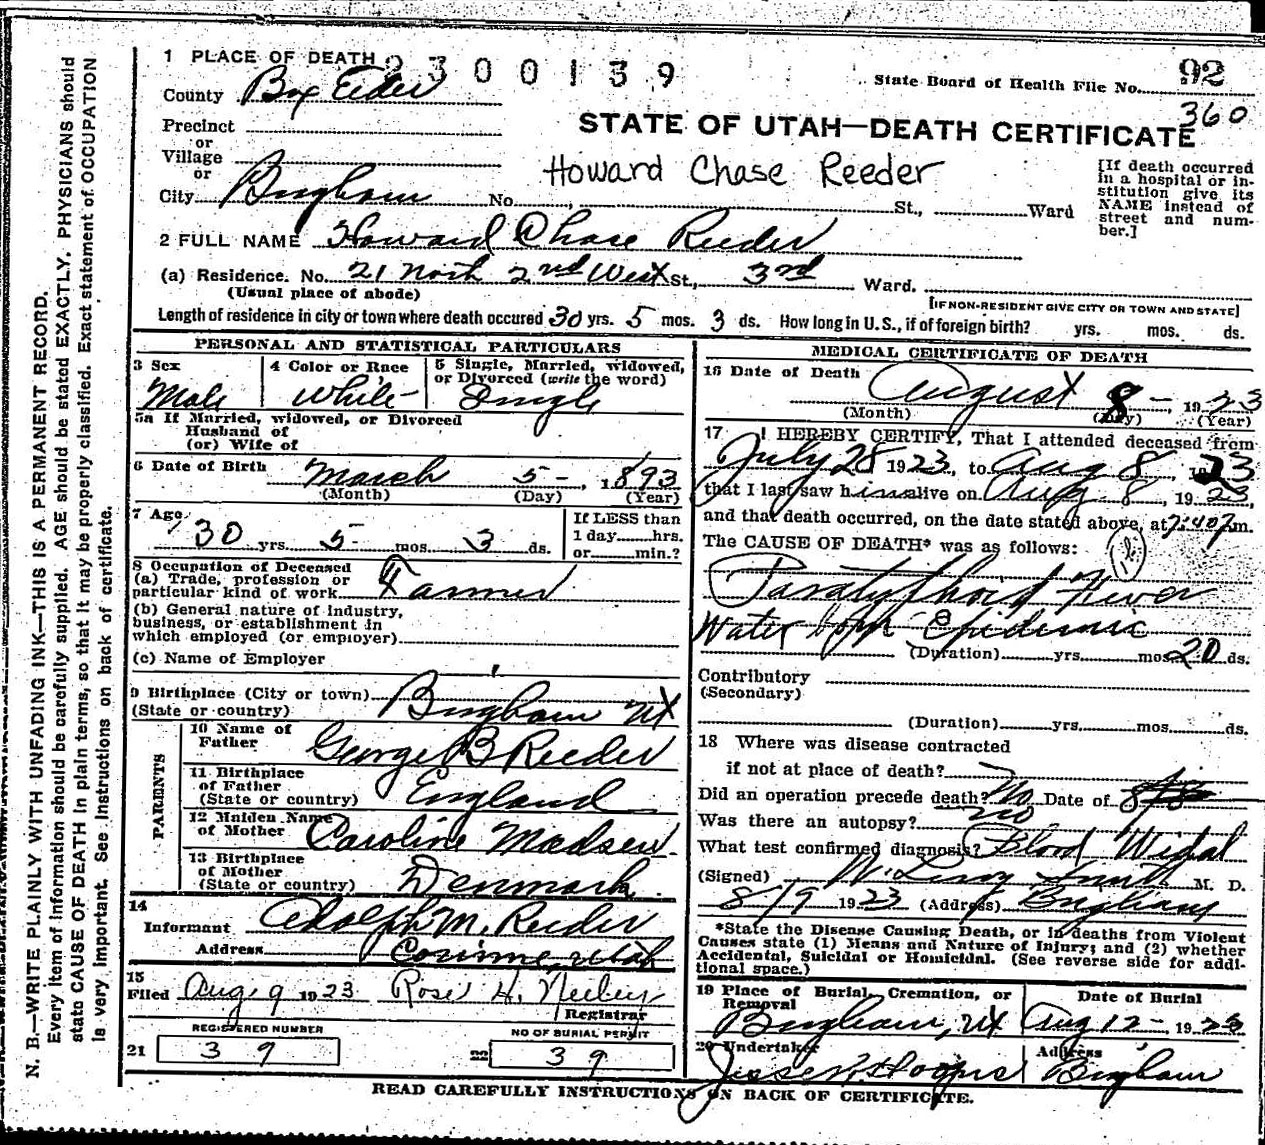 1 PLACE OF DEATH 2300139
State Board of Health File No. 92
County Box Elder
360
Precinct
or
Village
or
STATE OF UTAH—DEATH CERTIFICATE
Howard Chase Reeder
[If death occurred in a hospital or in-
stitution give its
NAME instead of
street and num-
ber.]
City Brigham No. St., Ward
2 FULL NAME Howard Chase Reeder
(a) Residence. No. 21 North 2nd West St., 3rd Ward.
(Usual place of abode)
[IF NON-RESIDENT GIVE CITY OR TOWN AND STATE]
Length of residence in city or town where death occured 30 yrs. 5 mos. 3 ds. How long in U.S., if of foreign birth? yrs. mos. ds.
PERSONAL AND STATISTICAL PARTICULARS
3 Sex
Male
4 Color or Race
White
5 Single, Married, widowed,
or Divorced (write the word)
Single
5a If Married, widowed, or Divorced
Husband of
(or) Wife of
6 Date of Birth March 5-, 1893
(Month) (Day) (Year)
7 Age
30 yrs. 5 mos. 3 ds.
If LESS than
1 day hrs.
or min.?
8 Occupation of Deceased
(a) Trade, profession or
particular kind of work Farmer
(b) General nature of industry,
business, or establishment in
which employed (or employer)
(c) Name of Employer
9 Birthplace (City or town) Brigham Ut
(State or country)
PARENTS
10 Name of
Father George B Reeder
11 Birthplace
of Father
(State or country) England
12 Maiden Name
of Mother Caroline Madsen
13 Birthplace
of Mother
(State or country) Denmark
14
Informant Adolph M. Reeder
Address Corinne, Utah
15
Filed Aug 9 1923 Rose H.
Registrar
REGISTERED NUMBER
21 39
NO OF BURIAL PERMIT
22 39
MEDICAL CERTIFICATE OF DEATH
16 Date of Death August 8-, 1923
(Month) (Day) (Year)
17 I HEREBY CERTIFY, That I attended deceased from
July 28 1923, to Aug 8, 1923
that I last saw him alive on Aug 8, 1923,
and that death occurred, on the date stated above, at 7:40 P m.
The CAUSE OF DEATH* was as follows:
Paratyphoid Fever
Water born Epidemic
(Duration) yrs. mos. 20 ds.
Contributory
(Secondary)
(Duration) yrs. mos. ds.
18 Where was disease contracted
if not at place of death?
Did an operation precede death? No Date of
Was there an autopsy? no
What test confirmed diagnosis? Blood Widal
(Signed) W. Leroy Smith M. D.
8/9 1923 (Address) Brigham
*State the Disease Causing Death, or in deaths from Violent
Causes state (1) Means and Nature of Injury; and (2) whether
Accidental, Suicidal or Homicidal. (See reverse side for addi-
tional space.)
19 Place of Burial, Cremation, or
Removal
Brigham, Ut
Date of Burial
Aug 12-, 1923
20 Undertaker
Address
Brigham
READ CAREFULLY INSTRUCTIONS ON BACK OF CERTIFICATE.
N. B.—WRITE PLAINLY WITH UNFADING INK—THIS IS A PERMANENT RECORD.
Every item of information should be carefully supplied. AGE should be stated EXACTLY. PHYSICIANS should
state CAUSE OF DEATH in plain terms, so that it may be properly classified. Exact statement of OCCUPATION
is very important. See instructions on back of certificate.